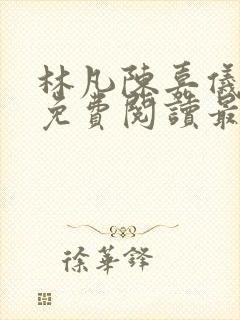 林凡陳嘉儀
免費閱讀最
徐華鋒